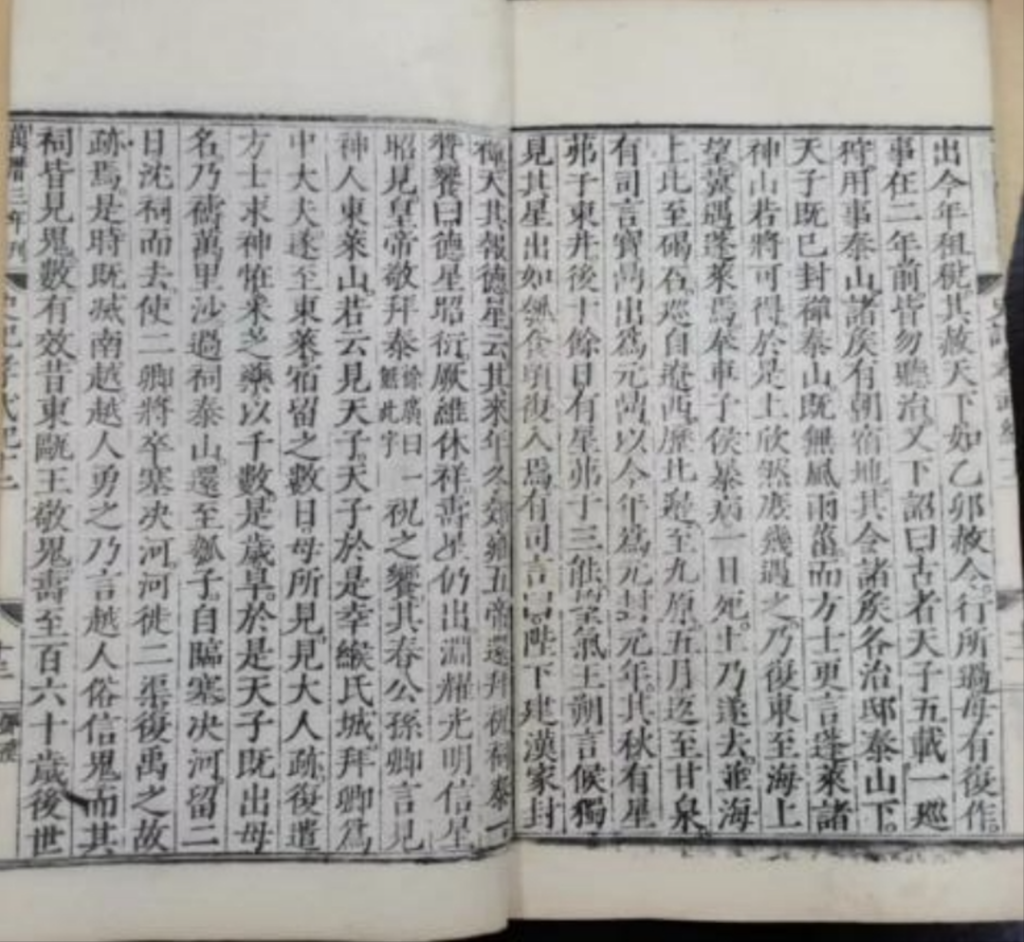 出今年租稅其赦天下如乙卯赦令行所過毋有復作
事在二年前皆勿聽治又下詔曰古者天子五載一巡
狩用事泰山諸侯有朝宿地其令諸侯各治邸泰山下
天子既已封禪泰山既無風雨菑而方士更言蓬萊諸
神山若將可得於是上欣然庶幾遇之乃復東至海上
望冀遇蓬萊焉奉車子侯暴病一日死上乃遂去並海
上北至碣石巡自遼西歷北邊至九原五月返至甘泉
有司言寶鼎出爲元鼎以今年爲元封元年其秋有星
茀于東井後十餘日有星茀于三能望氣王朔言候獨
見其星出如食頃復入焉有司言曰陛下建漢家封
禪天其報德星云其來年冬郊雍五帝還拜祝祠泰一
贊饗曰德星昭衍厥維休祥壽星仍出淵耀光明信星
昭見皇帝敬拜泰徐廣曰一魁此字祝之饗其春公孫卿言見
神人東萊山若云見天子天子於是幸緱氏城拜卿爲
中大夫遂至東萊宿留之數日毋所見見大人跡復遣
方士求神怪采芝藥以千數是歲旱於是天子既出毋
名乃禱萬里沙過祠泰山還至瓠子自臨塞决河留二
日沈祠而去使二卿將卒塞决河河徙二渠復禹之故
跡焉是時既滅南越越人勇之乃言越人俗信鬼而其
祠皆見鬼數有效昔東甌王敬鬼壽至百六十歲後世
萬曆三年刊